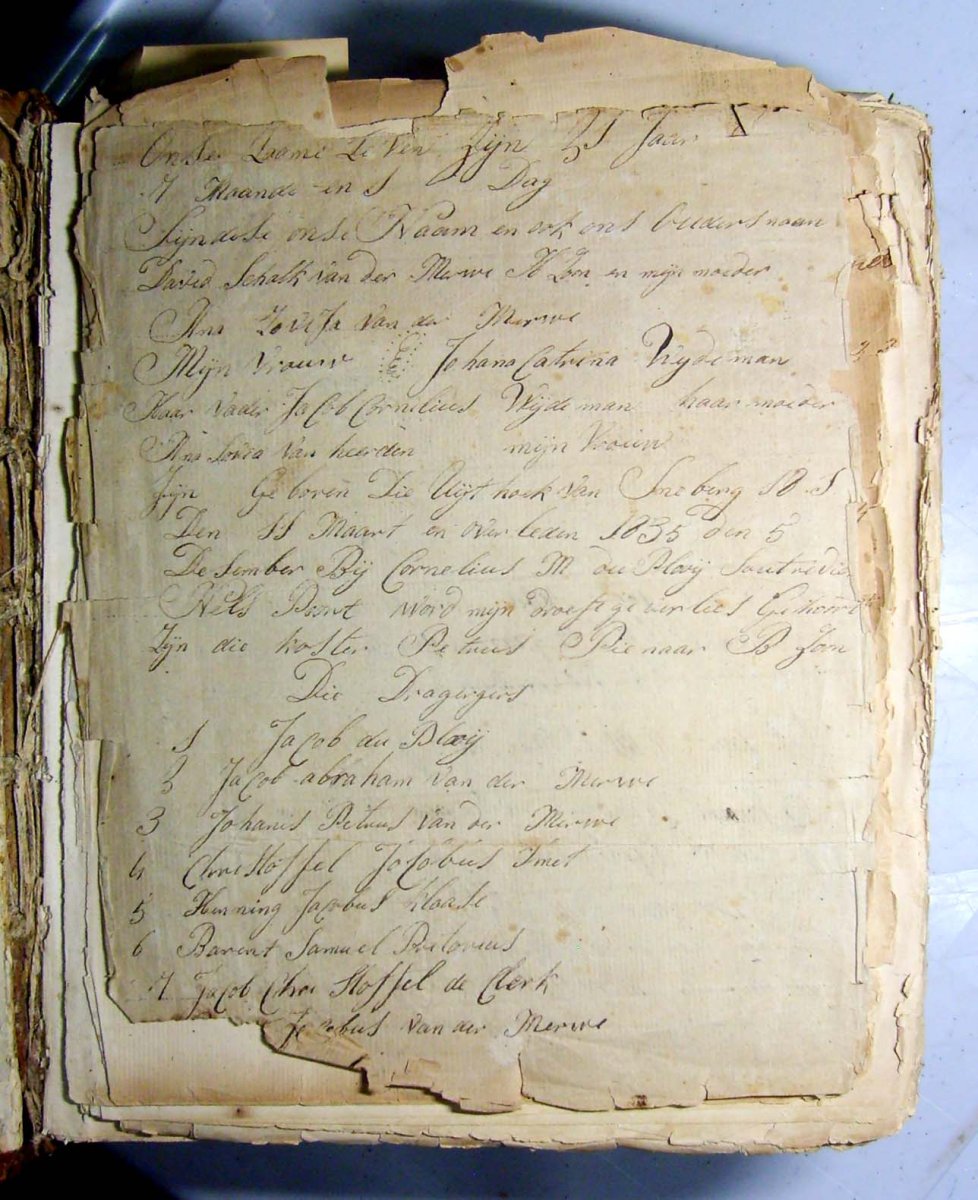 Onse Zame Leven Zijn 21 Jaar
7 Maande en 1 Dag
Sijn dese onse Naam en ook ons ouders naam
David Schalk van der Merwe Zoon en mijn moeder
Ana Lovisa van der Merwe
Mijn Vrouw Johana Catrina Wydeman
Haar vader Jacob Cornelius Wijdeman haar moeder
Ana Lovisa van heerden mijn Vrouw
Zijn Geboren Die Uijthoek van Sneberg 18 1
Den 11 Maart en overleden 1835 den 5
Desember Bij Cornelius M du Plooij
Word mijn droefege verlies
Zijn die koster Petrus Pienaar B Zoon
Die Dragergers
1 Jacob du Plooij
2 Jacob abraham van der Merwe
3 Johanis Petrus van der Merwe
4 Christoffel Jacobus Smet
5 Henning Jacobus Klaase
6 Barent Samuel Pretorius
7 Jacob Christoffel de Clerk
Jacobus van der Merwe